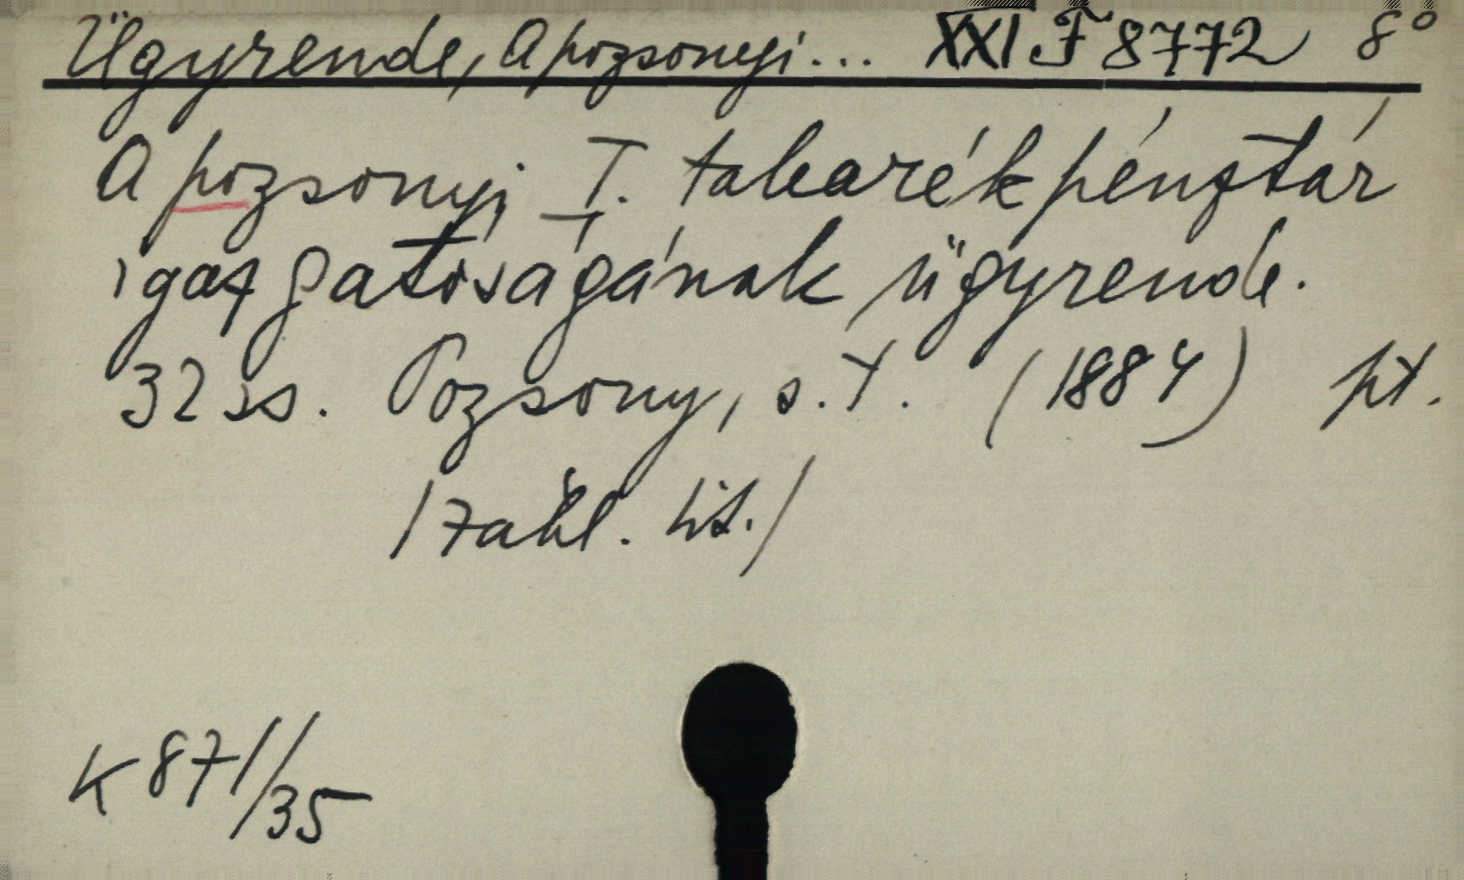 Ügyrende, A pozsonyi... XXI F 8772 8°
A pozsonyi I. takarékpénztár
igazgatóságának ügyrende.
32 ss. Pozsony, s. t. (1884) pt.
/zákl. lit./
K 871//35